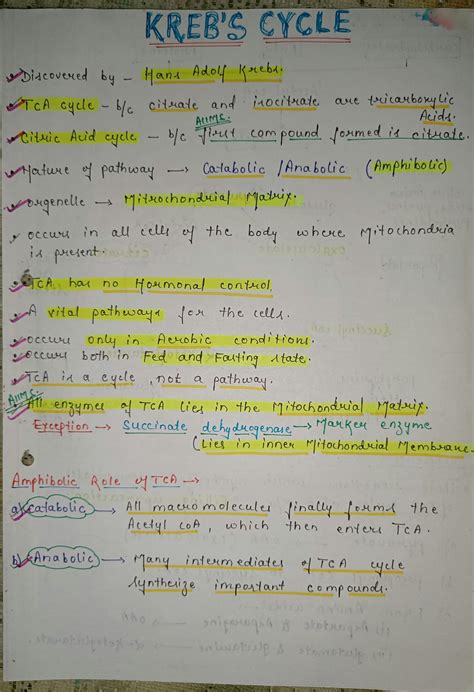 KREB'S CYCLE
Discovered by - Hans Adolf Krebs.
TCA cycle - b/c citrate and isocitrate are tricarboxylic
Acids.
AIIMS
Citric Acid cycle - b/c first compound formed is citrate.
Nature of pathway → Catabolic /Anabolic (Amphibolic)
Orgenelle → Mitrochondrial Matrix.
occurs in all cells of the body where Mitochondria
is present.
TCA has no Hormonal control.
A vital pathways for the cells.
occurs only in Aerobic conditions.
occurs both in Fed and Fasting state.
TCA is a cycle, not a pathway.
AIIMS
All enzymes of TCA lies in the Mitochondrial Matrix.
Exception → Succinate dehydrogenase → Marker enzyme
(Lies in inner Mitochondrial Membrane.
Amphibolic Role of TCA →
a) Catabolic → All macromolecules finally forms the
Acetyl CoA, which then enters TCA.
b) Anabolic → Many intermediates of TCA cycle
synthesize important compounds.